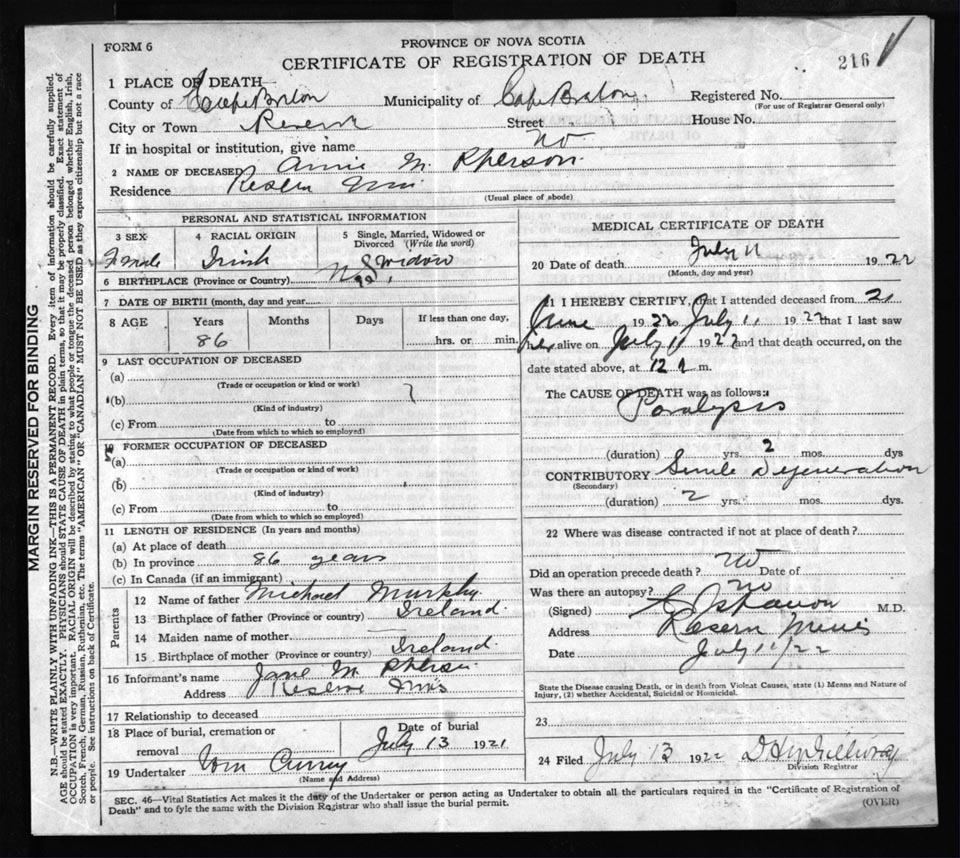 FORM 6
PROVINCE OF NOVA SCOTIA
CERTIFICATE OF REGISTRATION OF DEATH
216
1 PLACE OF DEATH
County of Cape Breton Municipality of Cape Breton Registered No.
(For use of Registrar General only)
City or Town Reserve Street House No.
If in hospital or institution, give name No
2 NAME OF DECEASED Annie McPherson
Residence Reserve Mines
(Usual place of abode)
PERSONAL AND STATISTICAL INFORMATION
3 SEX
4 RACIAL ORIGIN
5 Single, Married, Widowed or Divorced (Write the word)
Female Irish Widow
6 BIRTHPLACE (Province or Country) N.S.
7 DATE OF BIRTH (month, day and year)
8 AGE Years Months Days If less than one day,
86 hrs. or min.
9 LAST OCCUPATION OF DECEASED
(a)
(Trade or occupation or kind or work)
(b)
(Kind of industry)
(c) From to
(Date from which to which so employed)
10 FORMER OCCUPATION OF DECEASED
(a)
(Trade or occupation or kind of work)
(b)
(Kind of industry)
(c) From to
(Date from which to which so employed)
11 LENGTH OF RESIDENCE (In years and months)
(a) At place of death
(b) In province 86 years
(c) In Canada (if an immigrant)
Parents
12 Name of father Michael Murphy
13 Birthplace of father (Province or country) Ireland
14 Maiden name of mother
15 Birthplace of mother (Province or country) Ireland
16 Informant's name Jane McPherson
Address Reserve Mines
17 Relationship to deceased
18 Place of burial, cremation or removal
Date of burial
July 13 1921
19 Undertaker Tom Curry
(Name and Address)
MEDICAL CERTIFICATE OF DEATH
20 Date of death July 11 1922
(Month, day and year)
21 I HEREBY CERTIFY, that I attended deceased from 21
June 1922 to July 11 1922 that I last saw
her alive on July 11 1922 and that death occurred, on the
date stated above, at 12 m.
The CAUSE OF DEATH was as follows:
Paralysis
(duration) yrs. 2 mos. dys
CONTRIBUTORY Senile Degeneration
(Secondary)
(duration) 2 yrs. mos. dys.
22 Where was disease contracted if not at place of death?
Did an operation precede death? No Date of
Was there an autopsy? No
(Signed) M.D.
Address Reserve Mines
Date July 11/22
State the Disease causing Death, or in death from Violent Causes, state (1) Means and Nature of Injury, (2) whether Accidental, Suicidal or Homicidal.
23
24 Filed July 13 1922
Division Registrar
SEC. 46—Vital Statistics Act makes it the duty of the Undertaker or person acting as Undertaker to obtain all the particulars required in the "Certificate of Registration of
Death" and to fyle the same with the Division Registrar who shall issue the burial permit.
(OVER)
MARGIN RESERVED FOR BINDING
N.B.—WRITE PLAINLY WITH UNFADING INK—THIS IS A PERMANENT RECORD. Every item of information should be carefully supplied.
AGE should be stated EXACTLY. PHYSICIANS should STATE CAUSE OF DEATH in plain terms, so that it may be properly classified. Exact statement of
OCCUPATION is very important. RACIAL ORIGIN will be described by stating to what people or tongue the deceased person belonged whether English, Irish,
Scotch, French, German, Russian, Ruthenian, etc. The terms "AMERICAN" OR "CANADIAN" MUST NOT BE USED as they express citizenship but not a race
or people. See instructions on back of Certificate.